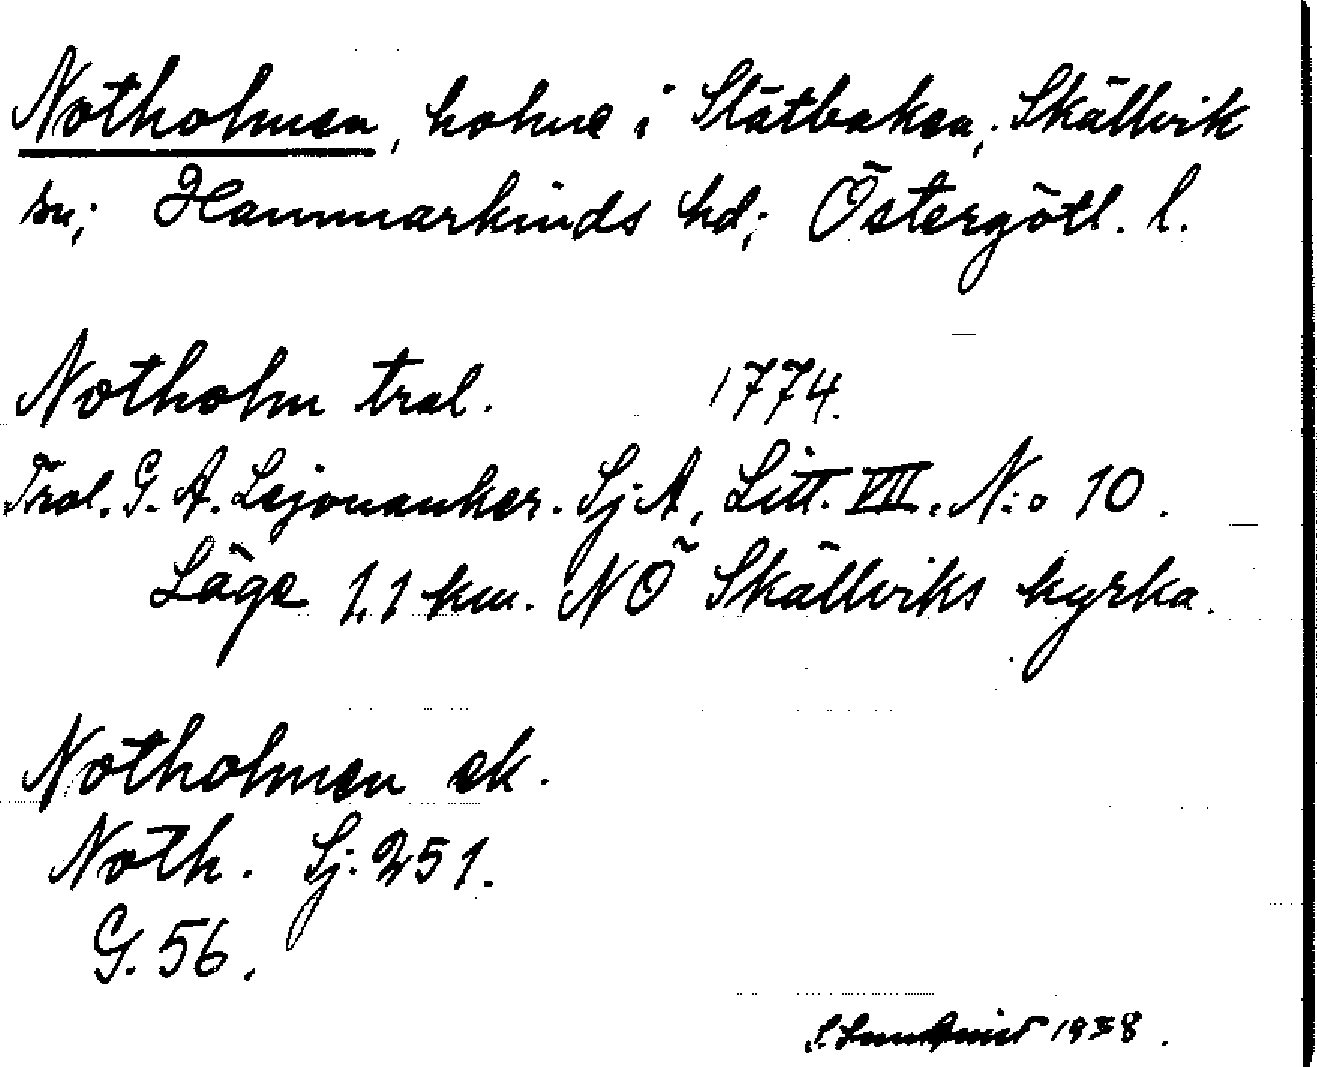 Notholmen, holme i Slätbaken, Skällvik
sn; Hammarkinds hd; Östergötl. l.
Notholm tral. 1774.
Tral. G. A. Lejonanker. Sj. A, Litt. VIII. N:o 10.
Läge 1,1 km. NÖ Skällviks kyrka.
Notholmen ek.
Noth. Sj. 251.
G. 56.
1938.